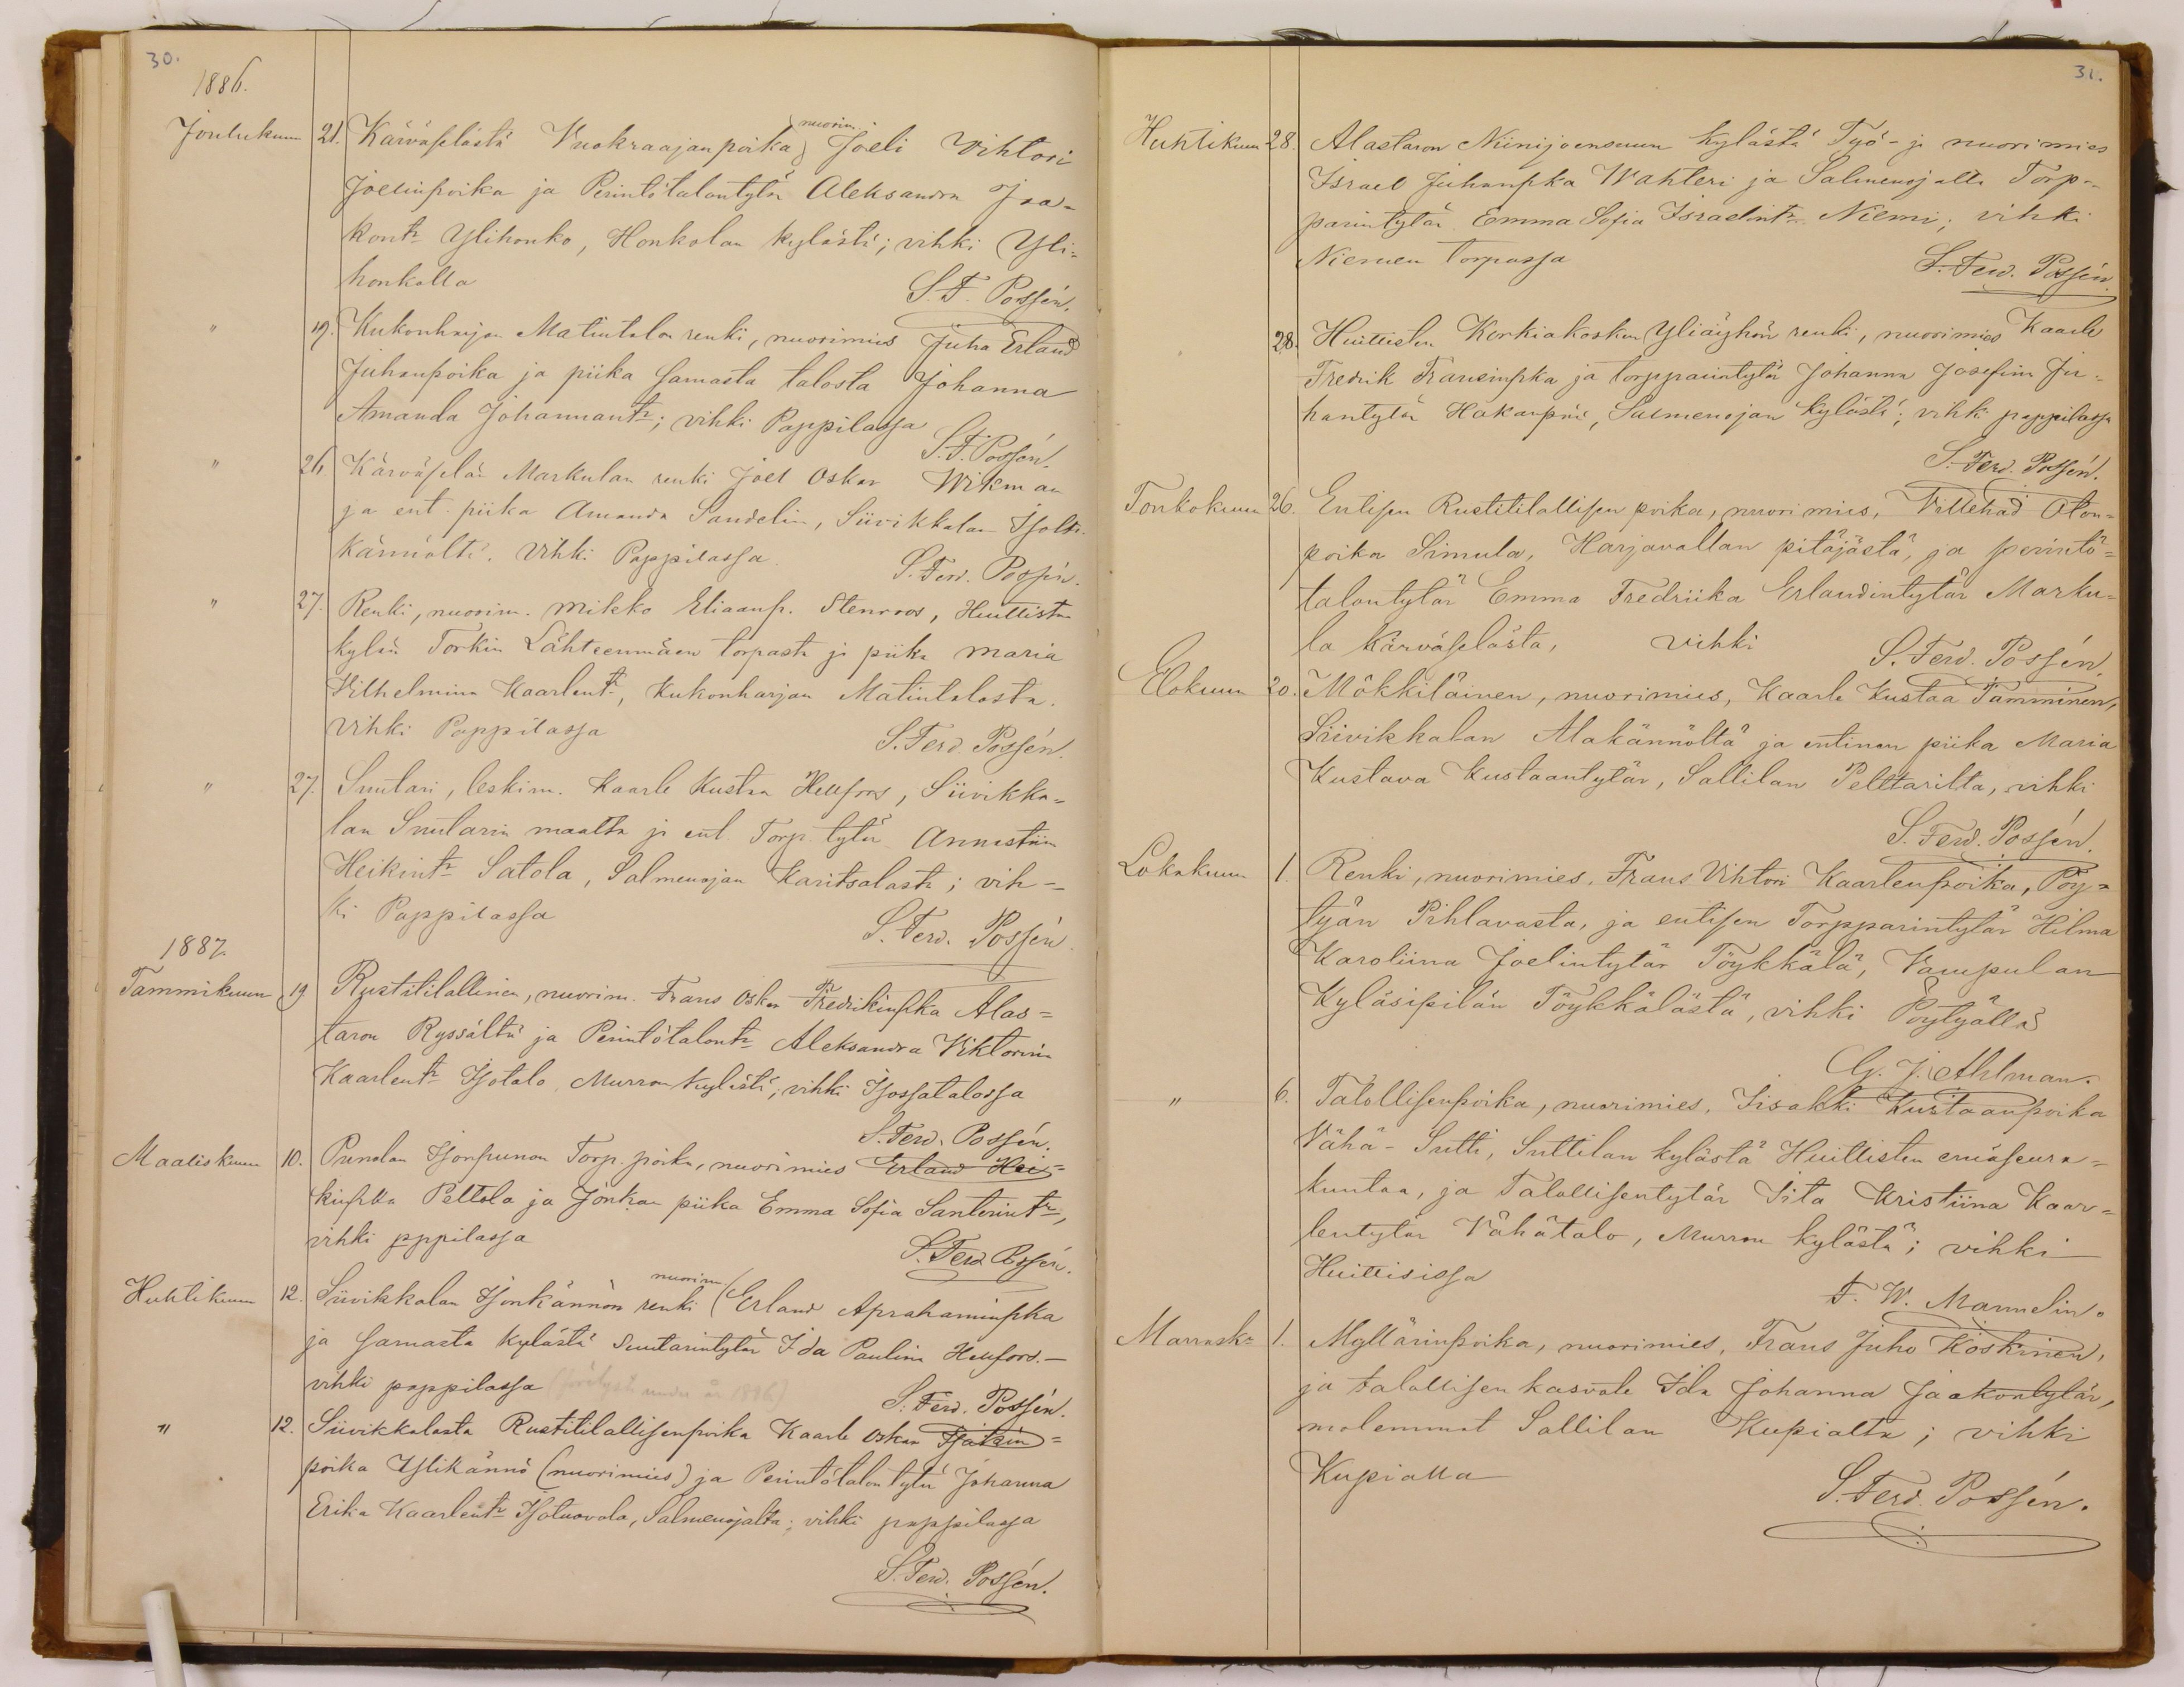 30.
1886.
Joulukuun 21. Kärväselästä Vuokraajanpoika, nuorim. Joeli Vihtori
Joelinpoika ja Perintötalontytär Aleksandra Jaa-
kontr Ylihonko, Honkolan kylästä; vihki Yli-
honkolla
S. F. Possén.
" 19. Kukonharjan Matintalon renki, nuorimies Juha Erland
Juhanpoika ja piika samasta talosta Johanna
Amanda Johannantr; vihki Pappilassa
S. F. Possén.
" 26 Kärväselän Markulan renki Joel Oskar Wikman
ja ent. piika Amanda Sandelin, Siivikkalan Iso
kännöltä. Vihki Pappilassa.
S. Ferd. Possén.
" 27. Renki, nuorim. Mikko Eliaanp. Stenroos, Huittisten
kylän Torkin Lähteenmäen torpasta ja piika Maria
Vilhelmina Kaarlentr, Kukonharjan Matintalosta.
Vihki Pappilassa
S. Ferd. Possén.
" 27. Suutari, leskim. Kaarle Kustaa Hellfors, Siivikka-
lan Suutarin maalta ja ent. Torp. tytär Annastiin
Heikintr Satola, Salmenojan Karitsalasta; vih-
ki Pappilassa
S. Ferd. Possén
1887.
Tammikuun 19 Rustitilallinen, nuorim. Frans Oskar Fredrikinpka Alas-
taron Ryssältä ja Perintötalontr Aleksandra Viktoriina
Kaarlentr Isotalo, Murron kylästä; vihki Isossatalossa
S. Ferd. Possén.
Maaliskuun 10. Punolan Isonpunon Torp. poika, nuorimies Erland Hei-
kinpka Peltola ja Jonkan piika Emma Sofia Santerintr,
vihki pppilassa
S. Ferd Possén.
Huhtikuun 12. Siivikkalan Isonkännön renki (nuorim. Erland Aprahaminpka
ja samasta kylästä Suutarintytär Ida Paulina Hellfors.-
vihki pappilassa
S. Ferd. Possén.
" 12. Siivikkalasta Rustitilallisenpoika Kaarle Oskar
poika Ylikännö (nuorimies) ja Perintötalontytär Johanna
Erika Kaarlentr Isotuovola, Salmenojalta; vihki pappilassa
S. Ferd. Possén.
31.
Huhtikuun 28. Alastaron Niinijoensuun kylästä Työ- ja nuorimies
Israel Juhanpka Wahteri ja Salmenojalta Torp-
parintytär Emma Sofia Israelintr Niemi; vihki
Niemen torpassa
S. Ferd. Possén.
28. Huittisten Korkiakosken Yliäyhön renki, nuorimies Kaarle
Fredrik Fransinpka ja torpparintytär Johanna Josefina Ju-
hantytär Hakanpää, Salmenojan kylästä; vihki pappilassa
S. Ferd. Possén.
Toukokuun 26. Entisen Rustitilallisen poika, nuorimies, Villehad Oton-
poika Simula, Harjavallan pitäjästä, ja perintö-
talontytär Emma Fredriika Erlandintytär Marku-
la Kärväselästä, vihki
S. Ferd. Possén
Elokuun 20. Mökkiläinen, nuorimies, Kaarle Kustaa Tamminen,
Siivikkalan Alakännöltä ja entinen piika Maria
Kustava Kustaantytär, Sallilan Pelttarilta, vihki
S. Ferd. Possén.
Lokakuun 1. Renki, nuorimies, Frans Vihtori Kaarlenpoika, Pöy-
tyän Pihlavasta, ja entisen Torpparintytär Hilma
Karoliina Joelintytär Töykkälä, Vampulan
Kyläsipilän Töykkälästä, vihki Pöytyällä
G. J. Ahlman.
" 6. Talollisenpoika, nuorimies, Iisakki Kustaanpoika
Vähä-Sutti, Suttilan kylästä Huittisten emäseura-
kuntaa, ja Talollisentytär Iita Kristiina Kaar-
lentytär Vähätalo, Murron kylästä; vihki
Huittisissa
F. W. Mannelin.
Marrask: 1. Myllärinpoika, nuorimies, Frans Juho Koskinen,
ja talollisen kasvate Ida Johanna Jaakontytär,
molemmat Sallilan Kupialta; vihki
Kupialla
S. Ferd. Possén.